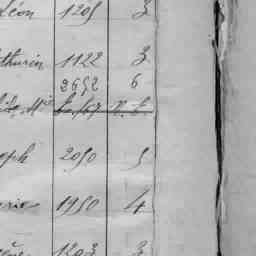 Léon 1205 3
thurin 1122 3
2652 6
Mie
eph 2090 5
rie 1950 4
1203 3